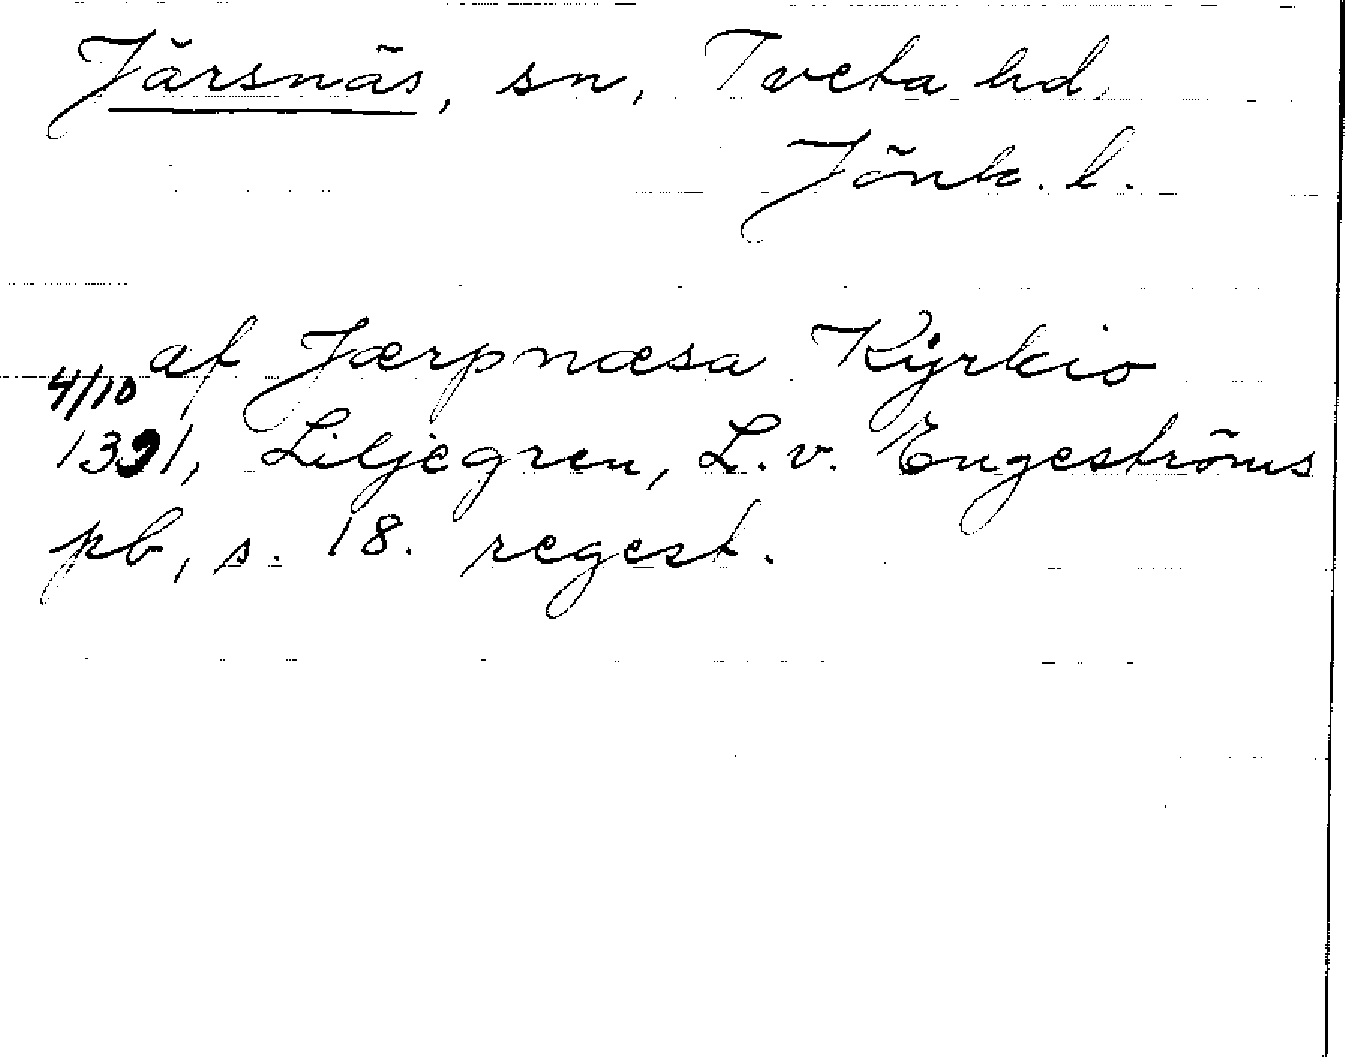 Järsnäs, sn, Tveta hd,
Jönk. l.
af Jærpnæsa Kyrkio
4/10
1391, Liljegren, L. v. Engeströms
pb, s. 18. regest.